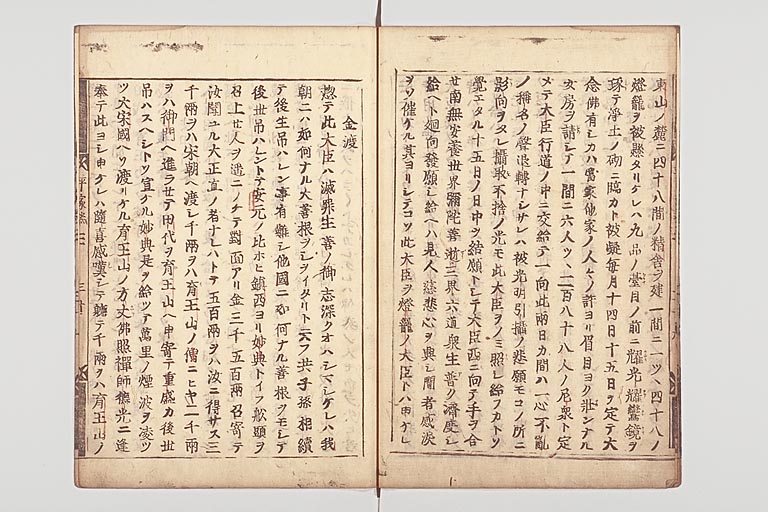 東山ノ麓ニ四十八間ノ精舎ヲ建一間ニ一ツヽ四十八ノ
燈籠ヲ被懸タリケレハ九品ノ臺目ノ前ニ耀光耀鸞鏡ヲ
琢テ浄土ノ砌ニ臨カト被疑毎月十四日十五日ヲ定テ大
念佛有シカハ當家他家ノ人々ノ許ヨリ眉目ヨク壯ンナル
女房ヲ請シテ一間ニ六人ツヽ二百八十八人ノ尼衆ト定
メテ大臣行道ノ中ニ交給テ一向此兩日カ間ハ一心不亂
ノ稱名ノ聲退轉ナシサレハ被光明引攝ノ悲願モコノ所ニ
影向ヲタレ攝取不捨ノ光モ此大臣ヲノミ照シ給フカトソ
覺エタル十五日ノ日中ヲ結願トシテ大臣西ニ向テ手ヲ合
セ南無安養世界彌陀善逝三界六道衆生普ク濟度シ
給ヘト廻向發願シ給ヘハ見人慈悲心ヲ興シ聞者感淚
ヲソ催ケル其ヨリシテコソ此大臣ヲ燈籠ノ大臣トハ申ケレ
金渡
惣テ此大臣ハ滅罪生善ノ御志深クオハシマシケレハ我
朝ニハ如何ナル大善根ヲシヲイタリト云フ共子孫相續
テ後生吊ハレン事有難シ他國ニ如何ナル善根ヲモシテ
後世吊ハレントテ安元ノ比ホヒ鎮西ヨリ妙典トイフ舩頭ヲ
召上セ人ヲ遙ニノケテ對面アリ金三千五百兩召寄テ
汝聞ユル大正直ノ者ナレハトテ五百兩ヲハ汝ニ得サス三
千兩ヲハ宋朝ヘ渡シ千兩ヲハ育王山ノ僧ニヒキ二千兩
ヲハ御門ヘ進ラセテ田代ヲ育王山ヘ申寄テ重盛カ後世
吊ハスヘシトソ宣ケル妙典是ヲ給ツテ萬里ノ煙波ヲ凌ツ
ツ大宋國ヘソ渡リケル育王山ノ方丈佛照禪師德光ニ逢
奉テ此ヨシ申ケレハ隨喜感嘆シテ聽テ千兩ヲハ育王山ノ